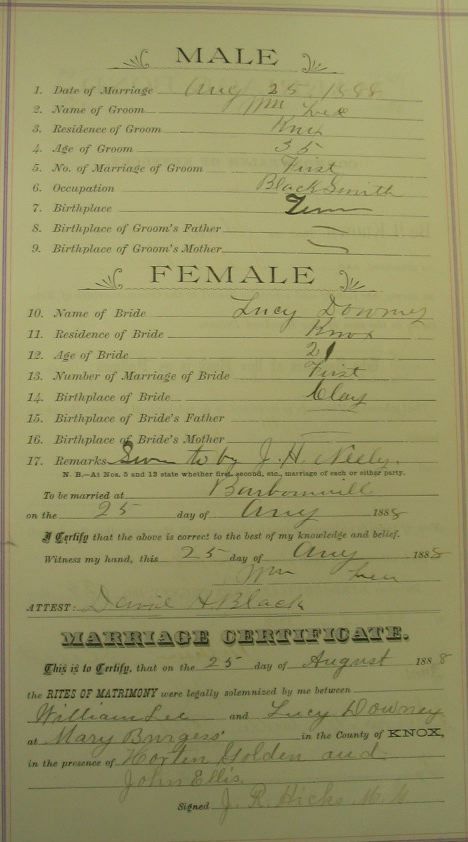 MALE
1. Date of Marriage Aug 25 1888
2. Name of Groom Wm Lee
3. Residence of Groom Knox
4. Age of Groom 35
5. No. of Marriage of Groom First
6. Occupation BlackSmith
7. Birthplace Tenn
8. Birthplace of Groom's Father
9. Birthplace of Groom's Mother
FEMALE
10. Name of Bride Lucy Downey
11. Residence of Bride Knox
12. Age of Bride 21
13. Number of Marriage of Bride First
14. Birthplace of Bride Clay
15. Birthplace of Bride's Father
16. Birthplace of Bride's Mother
17. Remarks Sworn to by J. H. Neeley
N. B.—At Nos. 5 and 13 state whether first, second, etc., marriage of each or either party.
To be married at Barbourville
on the 25 day of Aug 1888
I Certify that the above is correct to the best of my knowledge and belief.
Witness my hand, this 25 day of Aug, 1888
Wm Lee
ATTEST: David H Black
MARRIAGE CERTIFICATE.
This is to Certify, that on the 25 day of August 1888
the RITES OF MATRIMONY were legally solemnized by me between
William Lee and Lucy Downey
at Mary Burgess' in the County of KNOX,
in the presence of Horten Golden and
John Ellis
Signed J. R. Hicks